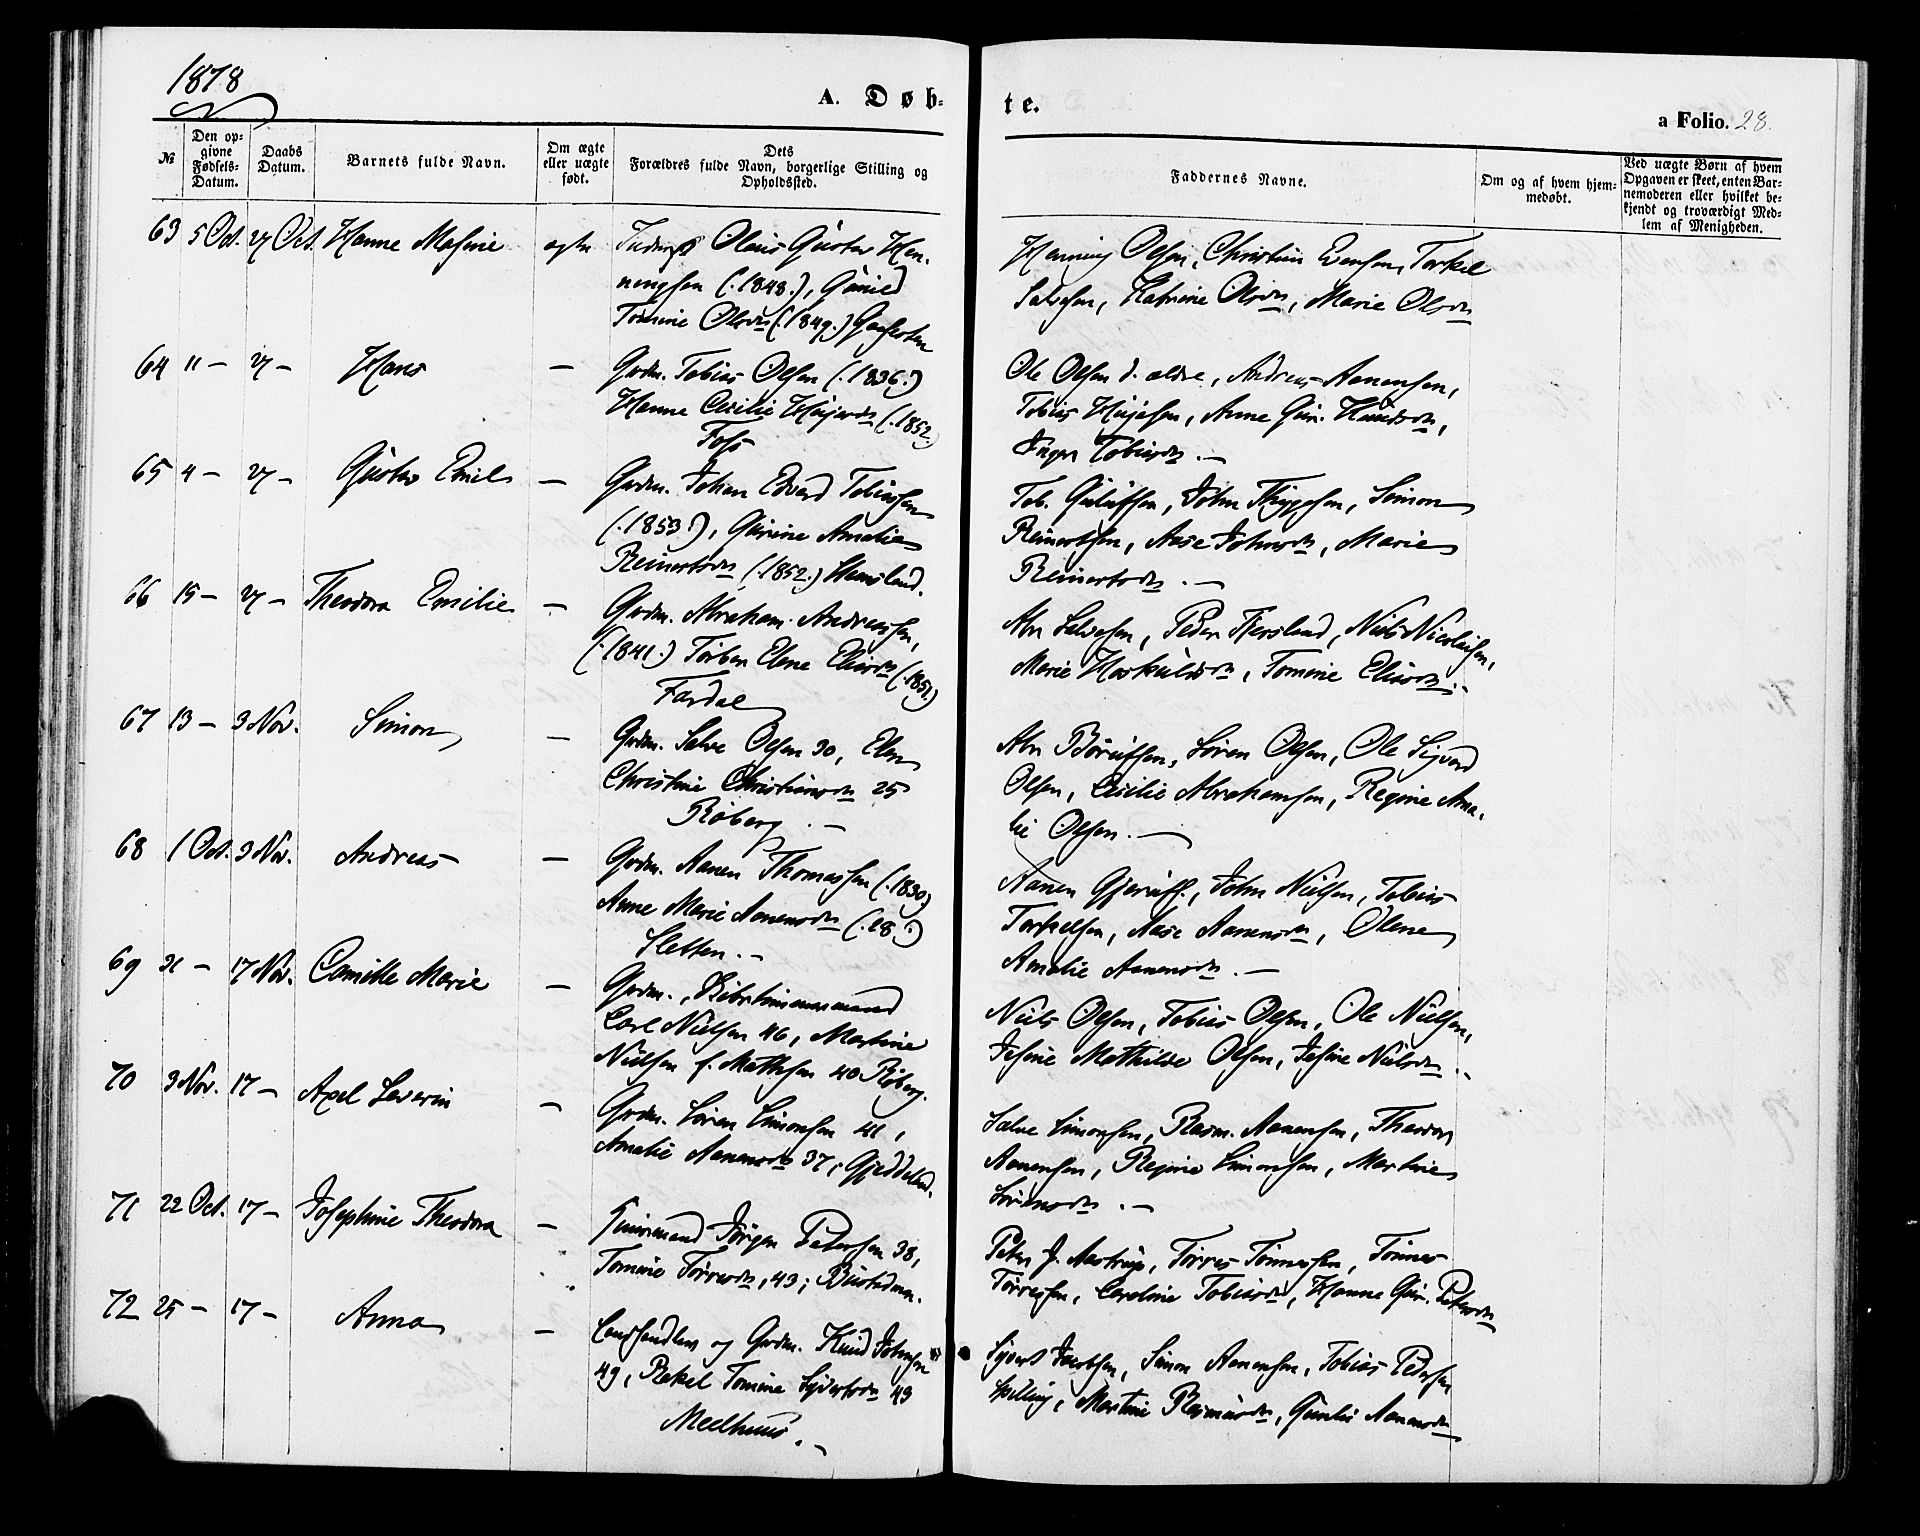 1878
A. Døb-
te.
a Folio. 28.
№
Den op-
givne
Fødsels-
Datum.
Daabs
Datum.
Barnets fulde Navn.
Om ægte
eller uægte
født.
Dets
Forældres fulde Navn, borgerlige Stilling og
Opholdssted.
Faddernes Navne.
Om og af hvem hjem-
medøbt.
Ved uægte Børn af hvem
Opgaven er skeet, enten Bar-
nemoderen eller hvilket be-
kjendt og troværdigt Med-
lem af Menigheden.
63 5 Oct. 27 Oct. Hanne Mosine ægte
Olaus Gustav Hen-
ningsen (.1848.), Gunild
Tomine Olsdr (.1849.)
Henning Olsen, Christian Evensen, Torkel
Salvesen, Katrine Olsdr, Marie Olsdr
64 11 – 27 – Hans –
Grdm. Tobias Olsen (.1836.)
Hanne Cecilie (.1852.)
Foss
Ole Olsen d. ældre, Andreas Aanensen,
Tobias, Anne Gur. Knudsdr,
Inger Tobiasdr. –
65 4 – 27 – Gustav Emil –
Grdm. Johan Edvard Tobiassen
(.1853.), Gurine Amalie
Reinertsdr (.1852.)
Tob. Gulufsen, John Thygesen, Simon
Reinertsen, Aase Johnsdr, Marie
Reinertsdr. –
66 15 – 27 – Theodora Emilie –
Grdm. Abraham Andreassen,
(.1841.) Torbor Elene Eliasdr (.1851.)
Fardal
Abr Salvesen, Peder, Niels Nicolaisen,
Marie, Tomine Eliasdr. –
67 13 – 3 Nov. Simon –
Grdm. Salve Olsen 30, Elen
Christine Christiansdr 25
Røberg. –
Abr Børufsen, Søren Olsen, Ole Sigvard
Olsen, Cecilie Abrahamsen, Regine Ama-
lie Olsen. –
68 1 Oct. 3 Nov. Andreas –
Grdm. Aanen Thomassen (.1830.)
Anne Marie Aanensdr (.28.)
Sletten. –
Aanen Gjerulfs., John Nielsen, Tobias
Torkelsen, Aase Aanensdr, Olene
Amalie Aanensdr. –
69 31 – 17 Nov. Camille Marie –
Grdm.,
Carl Nielsen 46, Martine
Nielsen f. Mathesen 40 Røberg.
Niels Olsen, Tobias Olsen, Ole Nielsen,
Josine Mathilde Olsen, Josine Nielsdr. –
70 3 Nov. 17 – Axel Severin –
Grdm. Søren Simonsen 41,
Amalie Aanensdr 37, Gjeddeland.
Salve Simonsen, Rasm. Aanensen, Theodor
Aanensen, Regine Simonsen, Martine
Sørensdr. –
71 22 Oct. 17 – Josephine Theodora –
Jørgen Petersen 38,
Tomine Tørresdr, 43;
Peter J. Aastrup, Tørres Tønnessen, Tønnes
Tørressen, Caroline Tobiasdr, Hanne Gur. Petersdr
72 25 – 17 – Anna –
Landhandler og Grdm. Knud Johnsen
49, Rakel Tomine Syvertsdr 43
Meelhuus. –
Syvert Jacobsen, Simon Aanensen, Tobias Pedersen
Spilling, Martine Rasmusdr, Aanensdr